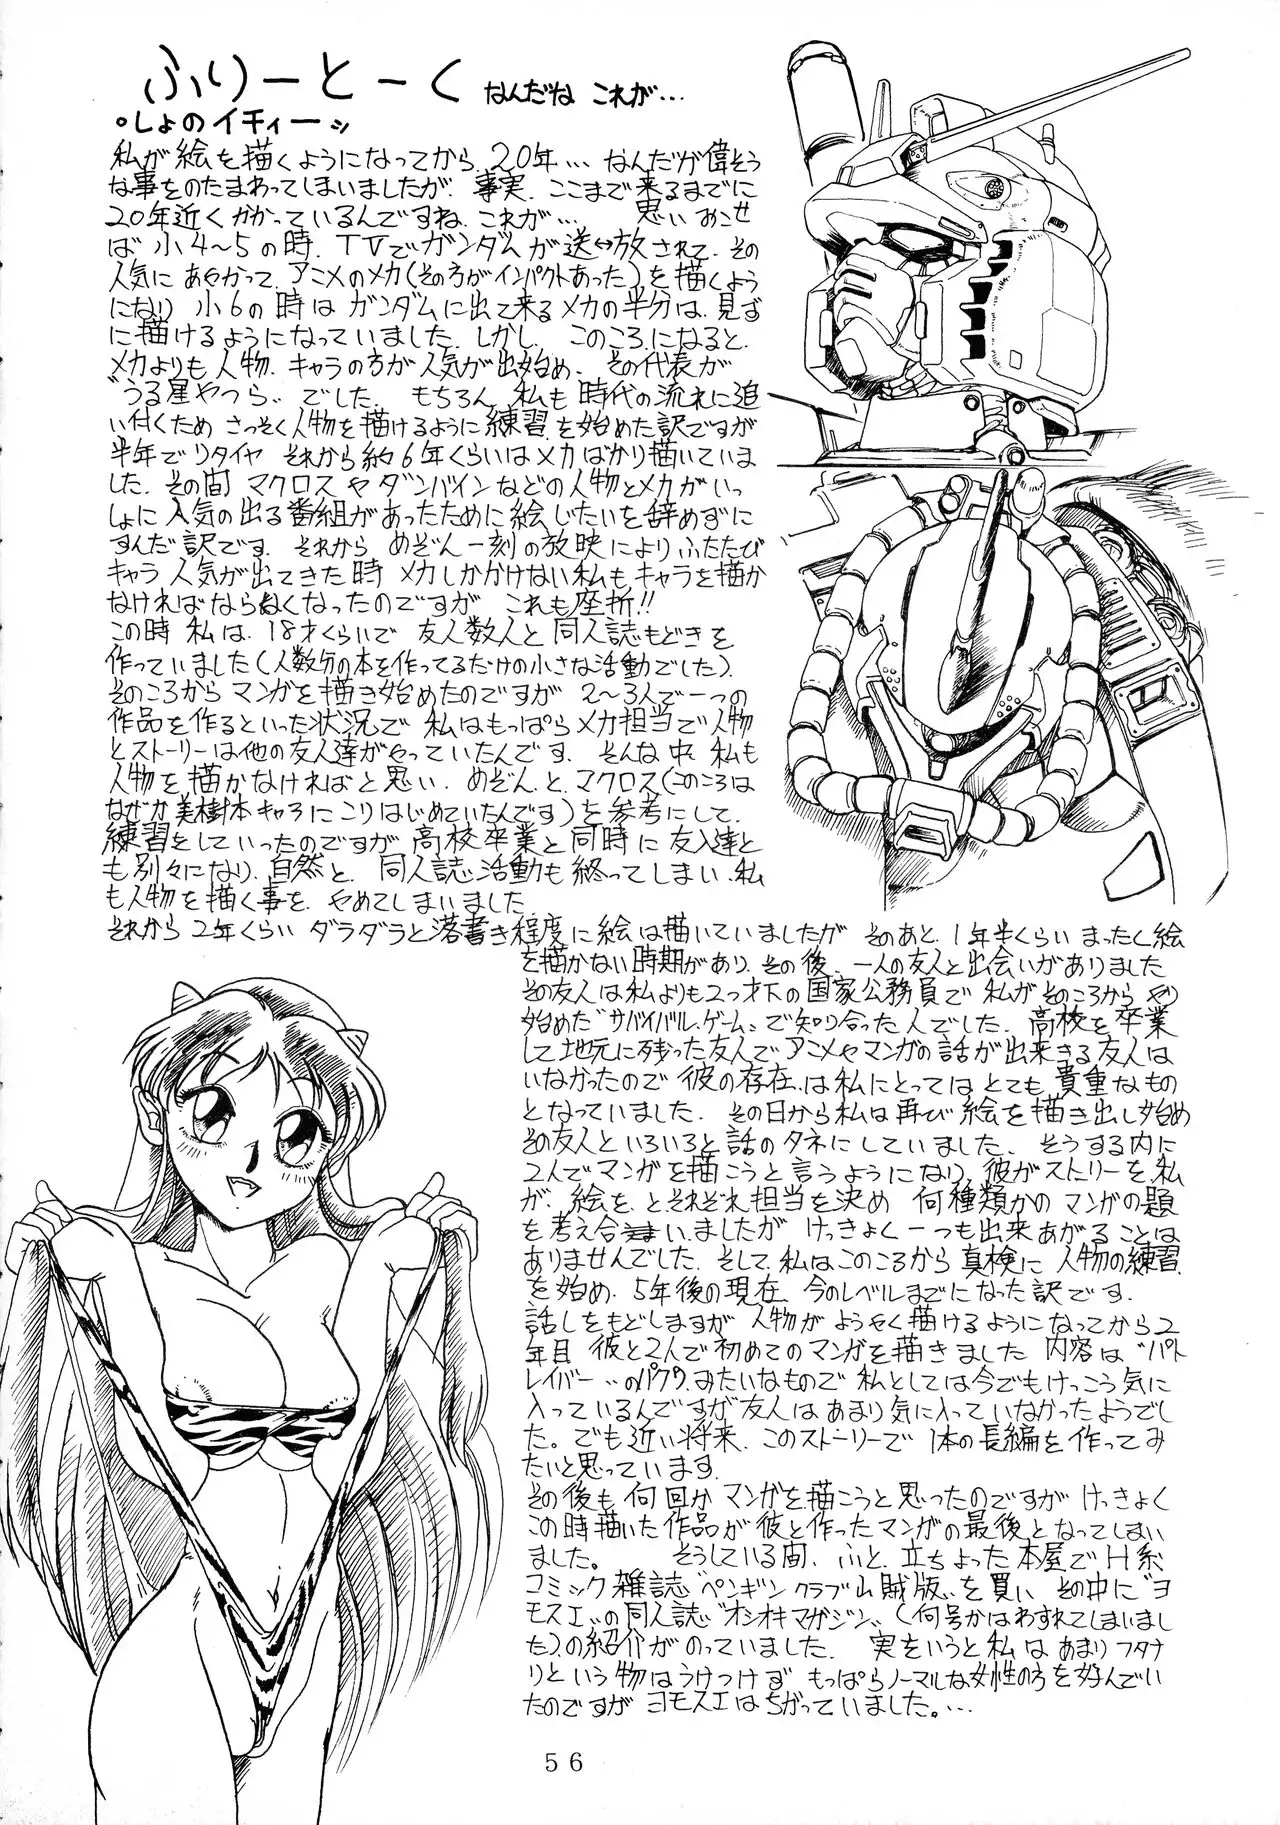 ふりーとーく なんだね これが…
・しょのイチィーッ
私が絵を描くようになってから 20年… なんだが偉そう
な事をのたまわってしまいましたが、事実、ここまで来るまでに
20年近くかかっているんですね、これが… 思いおこせ
ば 小4〜5の時、TVでガンダムが送↔放されて、その
人気に あやかって、アニメのメカ(その方がインパクトあった)を描くよう
になり 小6の時は ガンダムに出て来るメカの半分は、見ず
に描けるようになっていました。しかし、このころになると、
メカよりも人物、キャラの方が人気が出始め、その代表が
"うる星やつら" でした。 もちろん、私も時代の流れに追
い付くため さっそく人物を描けるように練習を始めた訳ですが
半年でリタイヤ それから約6年くらいはメカばかり描いていま
した。その間 マクロスやダンバインなどの人物とメカがいっ
しょに人気の出る番組があったために絵じたいを辞めずに
すんだ訳です。それから めぞん一刻の放映によりふたたび
キャラ人気が出てきた時 メカしかかけない私もキャラを描か
なければならなくなったのですが これも座折!!
この時 私は、18才くらいで 友人数人と同人誌もどきを
作っていました(人数分の本を作ってるだけの小さな活動でした)。
そのころからマンガを描き始めたのですが 2〜3人で一つの
作品を作るといった状況で 私はもっぱらメカ担当で人物
とストーリーは他の友人達がやっていたんです。 そんな中 私も
人物を描かなければと思い、めぞん、と、マクロス(このころは
なぜか美樹本キャラにこりはじめていたんです)を参考にして、
練習をしていったのですが 高校卒業と同時に友人達と
も別々になり、自然と、同人誌活動も終ってしまい、私
も人物を描く事を、やめてしまいました
それから 2年くらい ダラダラと落書き程度に絵は描いていましたが そのあと、1年半くらい まったく絵
を描かない時期があり、その後、一人の友人と出会いがありました
その友人は私よりも2つ才下の国家公務員で 私がそのころから や
始めた"サバイバル・ゲーム"で知り合った人でした。高校を卒業
して地元に残った友人でアニメやマンガの話が出来きる友人は
いなかったので 彼の存在、は私にとってはとても貴重なもの
となっていました。その日から私は再び絵を描き出し始め
その友人といろいろと話のタネにしていました。そうする内に
2人でマンガを描こうと言うようになり、彼がストーリーを、私
が、絵を、とそれぞれ担当を決め 何種類かの マンガの題
を考え合まいましたが けっきょく一つも出来あがることは
ありませんでした。そして、私はこのころから真検に人物の練習
を始め、5年後の現在、今のレベルまでになった訳です。
話しをもどしますが 人物が ようやく描けるようになってから2
年目 彼と2人で初めてのマンガを描きました 内容は"パト
レイバー"のパクり、みたいなもので 私としては今でもけっこう気に
入っているんですが友人はあまり気に入っていなかったようでし
た。でも近い将来、このストーリーで1本の長編を作ってみ
たいと思っています。
その後も何回かマンガを描こうと思ったのですが けっきょく
この時描いた作品が彼と作ったマンガの最後となってしまい
ました。 そうしている間、ふと、立ちよった本屋でH系
コミック雑誌"ペンギンクラブ山賊版"を買い その中に"ヨ
モスエ"の同人誌"オシオキマガジン"(何号かはわすれてしまいまし
た)の紹介がのっていました。 実をいうと私はあまりフタナ
リという物はうけつけず もっぱらノーマルな女性の方を好んでい
たのですが ヨモスエはちがっていました。…
56